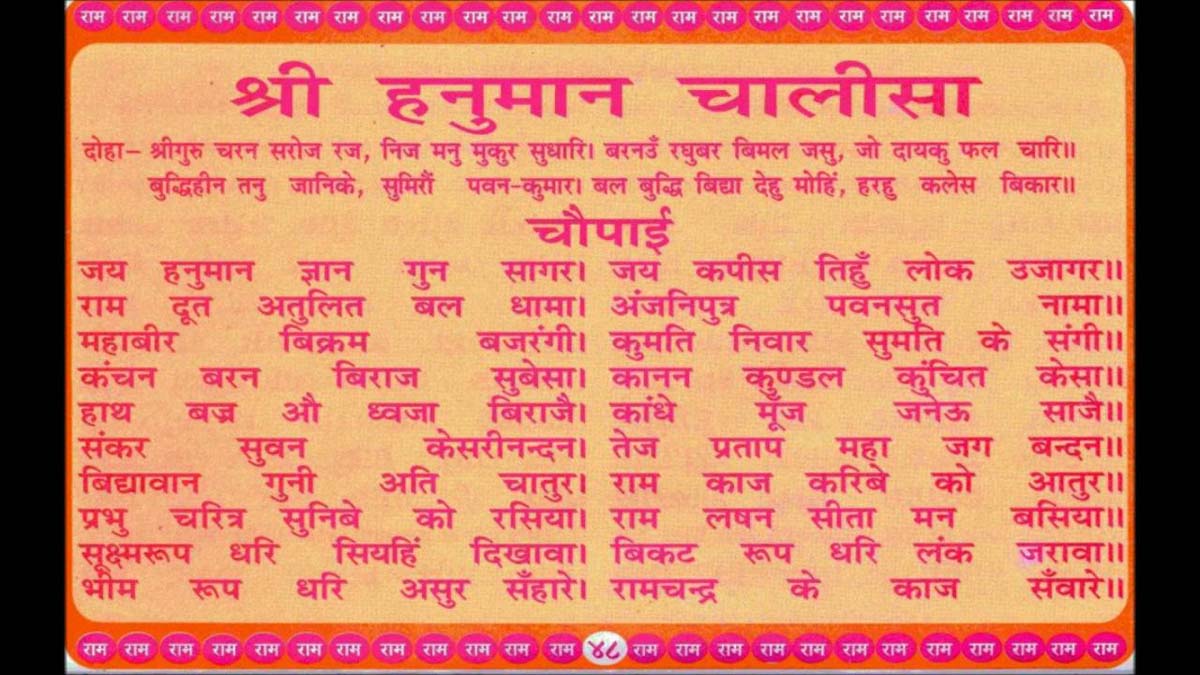 राम राम राम राम राम राम राम राम राम राम राम राम राम राम राम राम राम राम राम राम राम राम राम राम राम
श्री हनुमान चालीसा
दोहा– श्रीगुरु चरन सरोज रज, निज मनु मुकुर सुधारि। बरनउँ रघुबर बिमल जसु, जो दायकु फल चारि॥
बुद्धिहीन तनु जानिके, सुमिरौं पवन-कुमार। बल बुद्धि बिद्या देहु मोहिं, हरहु कलेस बिकार॥
चौपाई
जय हनुमान ज्ञान गुन सागर। जय कपीस तिहुँ लोक उजागर॥
राम दूत अतुलित बल धामा। अंजनिपुत्र पवनसुत नामा॥
महाबीर बिक्रम बजरंगी। कुमति निवार सुमति के संगी॥
कंचन बरन बिराज सुबेसा। कानन कुण्डल कुंचित केसा॥
हाथ बज्र औ ध्वजा बिराजै। कांधे मूँज जनेऊ साजै॥
संकर सुवन केसरीनन्दन। तेज प्रताप महा जग बन्दन॥
बिद्यावान गुनी अति चातुर। राम काज करिबे को आतुर॥
प्रभु चरित्र सुनिबे को रसिया। राम लषन सीता मन बसिया॥
सूक्ष्मरूप धरि सियहिं दिखावा। बिकट रूप धरि लंक जरावा॥
भीम रूप धरि असुर सँहारे। रामचन्द्र के काज सँवारे॥
राम राम राम राम राम राम राम राम राम राम राम राम ४८ राम राम राम राम राम राम राम राम राम राम राम राम